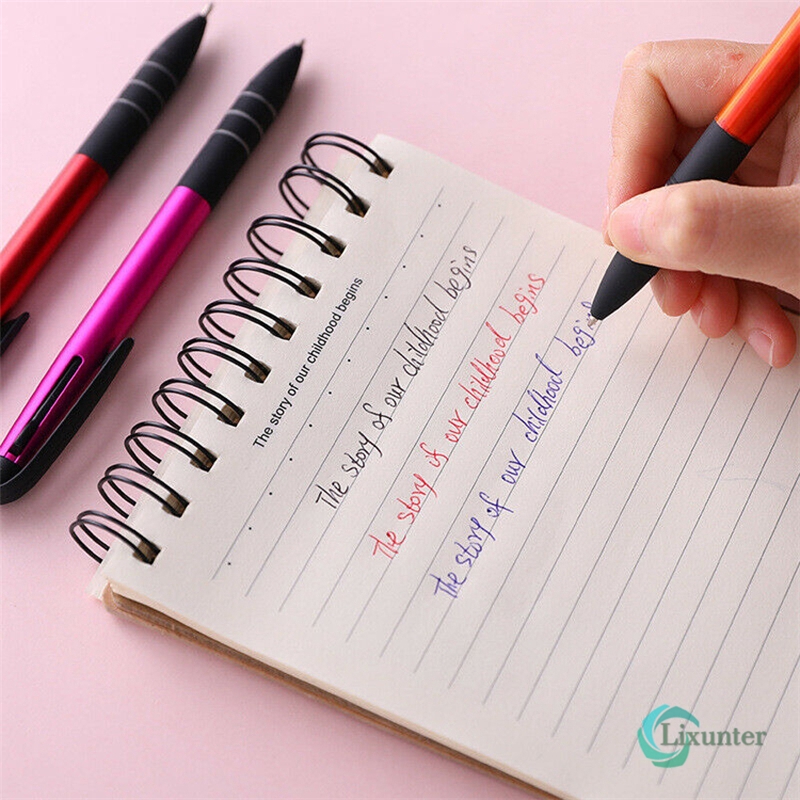 The story of our childhood begins
The story of our childhood begins
The story of our childhood begins
The story of our childhood begins
Lixunter